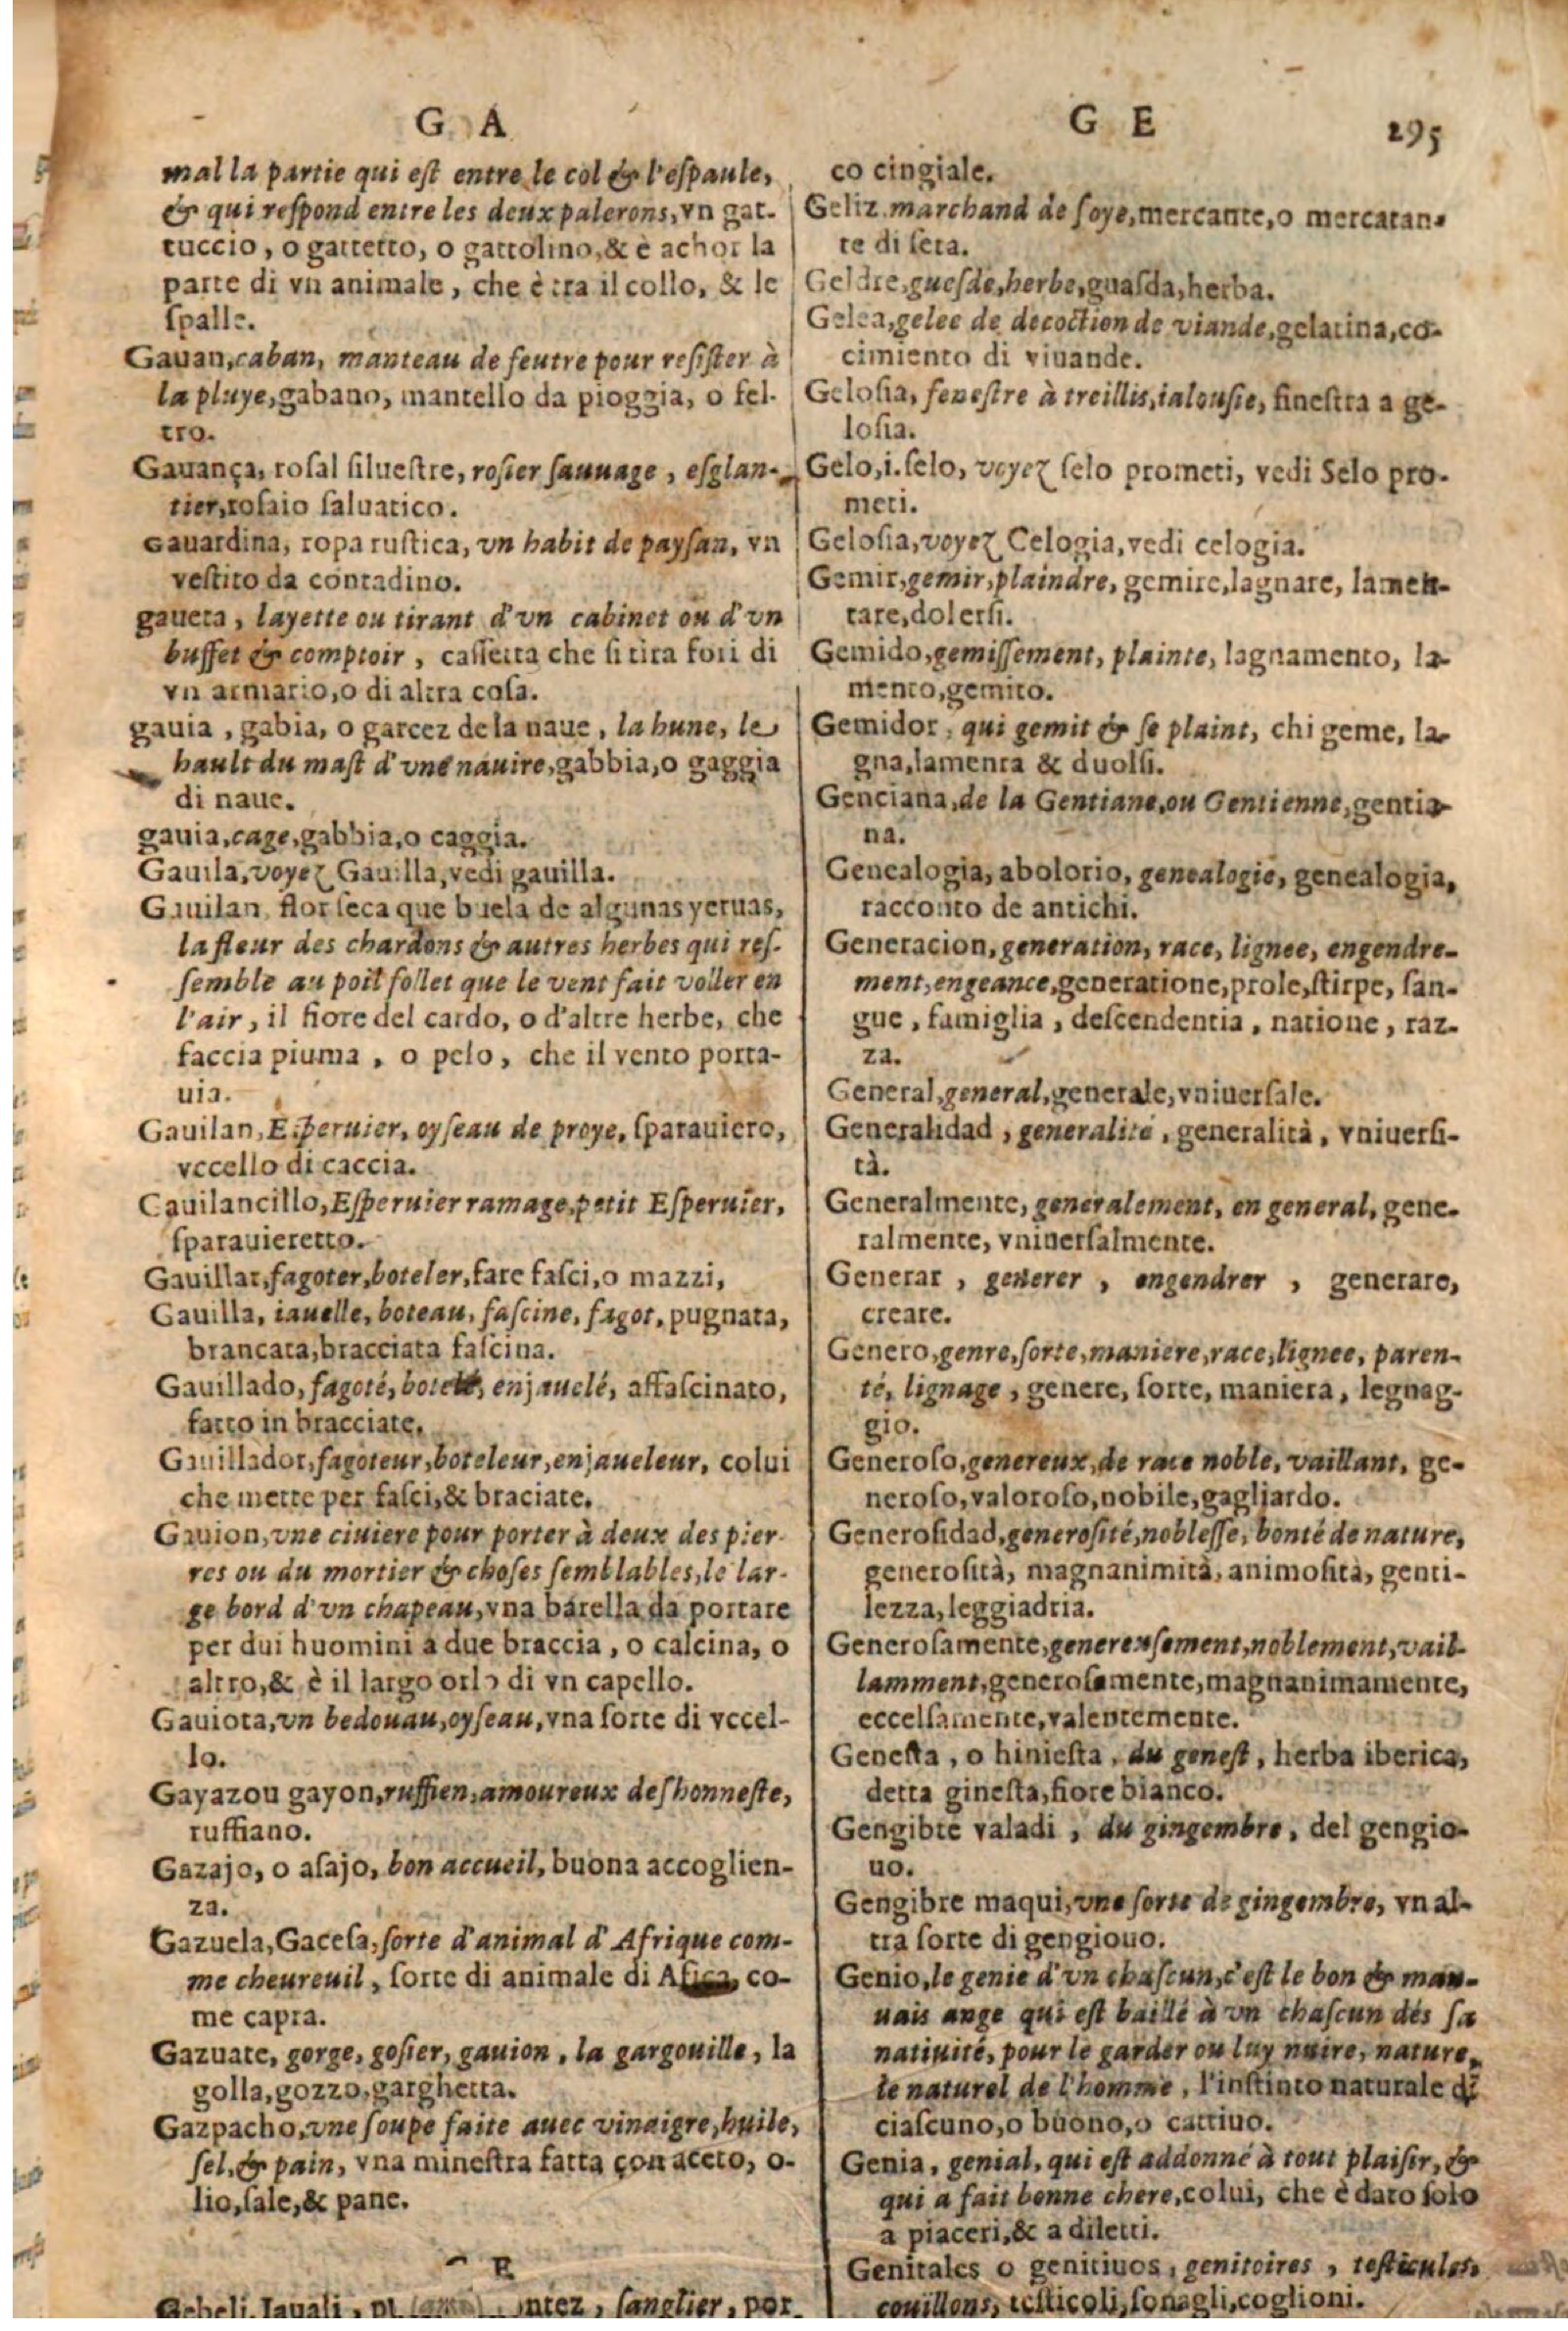 G A
mal la partie qui est entre le col & l'espaule,
& qui respond entre les deux palerons, vn gat-
tuccio, o gattetto, o gattolino, & è achor la
parte di vn animale, che è tra il collo, & le
spalle.
Gauan, caban, manteau de feutre pour resister à
la pluye, gabano, mantello da pioggia, o fel-
tro.
Gauança, rosal siluestre, rosier sauuage, esglan-
tier, rosaio saluatico.
Gauardina, ropa rustica, vn habit de paysan, vn
vestito da contadino.
gaueta, layette ou tirant d'vn cabinet ou d'vn
buffet & comptoir, cassetta che si tira fori di
vn armario, o di altra cosa.
gauia, gabia, o garcez de la naue, la hune, le
hault du mast d'vne nauire, gabbia, o gaggia
di naue.
gauia, cage, gabbia, o caggia.
Gauila, voyez Gauilla, vedi gauilla.
Gauilan, flor seca que buela de algunas yeruas,
la fleur des chardons & autres herbes qui res-
semble au poil follet que le vent fait voller en
l'air, il fiore del cardo, o d'altre herbe, che
faccia piuma, o pelo, che il vento porta-
uia.
Gauilan, Esperuier, oyseau de proye, sparauiero,
vccello di caccia.
Cauilancillo, Esperuier ramage, petit Esperuier,
sparauieretto.
Gauillar, fagoter, boteler, fare fasci, o mazzi,
Gauilla, iauelle, boteau, fascine, fagot, pugnata,
brancata, bracciata fascina.
Gauillado, fagoté, botelé, enjauelé, affascinato,
fatto in bracciate.
Gauillador, fagoteur, boteleur, enjaueleur, colui
che mette per fasci, & braciate.
Gauion, vne ciuiere pour porter à deux des pier-
res ou du mortier & choses semblables, le lar-
ge bord d'vn chapeau, vna barella da portare
per dui huomini a due braccia, o calcina, o
altro, & è il largo orlo di vn capello.
Gauiota, vn bedouau, oyseau, vna sorte di vccel-
lo.
Gayazou gayon, ruffien, amoureux deshonneste,
ruffiano.
Gazajo, o asajo, bon accueil, buona accoglien-
za.
Gazuela, Gacesa, sorte d'animal d'Afrique com-
me cheureuil, sorte di animale di Afica, co-
me capra.
Gazuate, gorge, gosier, gauion, la gargouille, la
golla, gozzo, garghetta.
Gazpacho, vne soupe faite auec vinaigre, huile,
sel, & pain, vna minestra fatta con aceto, o-
lio, sale, & pane.
E
Gebeli, Iauali, sanglier, por
G E 295
co cingiale.
Geliz marchand de soye, mercante, o mercatan-
te di seta.
Geldre, guesde, herbe, guasda, herba.
Gelea, gelee de decoction de viande, gelatina, co-
cimiento di viuande.
Gelosia, fenestre à treillis, ialousie, finestra a ge-
losia.
Gelo, i. selo, voyez selo prometi, vedi Selo pro-
meti.
Gelosia, voyez Celogia, vedi celogia.
Gemir, gemir, plaindre, gemire, lagnare, lamen-
tare, dolersi.
Gemido, gemissement, plainte, lagnamento, la-
mento, gemito.
Gemidor, qui gemit & se plaint, chi geme, la-
gna, lamenta & duolsi.
Genciana, de la Gentiane, ou Gentienne, gentia-
na.
Genealogia, abolorio, genealogie, genealogia,
racconto de antichi.
Generacion, generation, race, lignee, engendre-
ment, engeance, generatione, prole, stirpe, san-
gue, famiglia, descendentia, natione, raz-
za.
General, general, generale, vniuersale.
Generalidad, generalité, generalità, vniuersi-
tà.
Generalmente, generalement, en general, gene-
ralmente, vniuersalmente.
Generar, generer, engendrer, generare,
creare.
Genero, genre, sorte, maniere, race, lignee, paren-
té, lignage, genere, sorte, maniera, legnag-
gio.
Generoso, genereux, de race noble, vaillant, ge-
neroso, valoroso, nobile, gagliardo.
Generosidad, generosité, noblesse, bonté de nature,
generosità, magnanimità, animosità, genti-
lezza, leggiadria.
Generosamente, genereusement, noblement, vail-
lamment, generosamente, magnanimamente,
eccelsamente, valentemente.
Genesta, o hiniesta, du genest, herba iberica,
detta ginesta, fiore bianco.
Gengibre valadi, du gingembre, del gengio-
uo.
Gengibre maqui, vne sorte de gingembre, vn al-
tra sorte di gengiouo.
Genio, le genie d'vn chascun, c'est le bon & mau-
uais ange qui est baillé à vn chascun dés sa
natiuité, pour le garder ou luy nuire, nature,
le naturel de l'homme, l'instinto naturale di
ciascuno, o buono, o cattiuo.
Genia, genial, qui est addonné à tout plaisir, &
qui a fait bonne chere, colui, che è dato solo
a piaceri, & a diletti.
Genitales o genitiuos, genitoires, testicules,
couillons, testicoli, sonagli, coglioni.